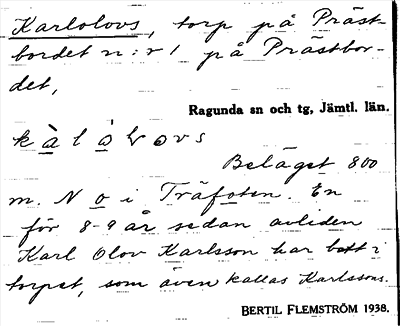 Karlolovs, torp på Präst-
bordet n:r 1 på Prästbor-
det,
Ragunda sn och tg, Jämtl. län.
kàlólovs
Beläget 800
m. N o i Träfoten. En
för 8-9 år sedan avliden
Karl Olov Karlsson har bott i
torpet, som även kallas Karlssons.
BERTIL FLEMSTRÖM 1938.